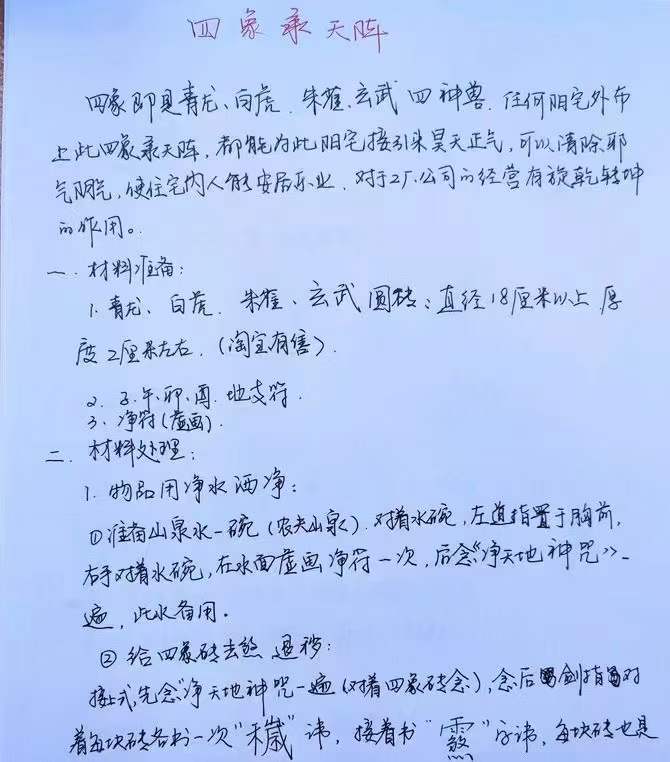 四象承天阵
四象即是青龙、白虎、朱雀、玄武四神兽.任何阳宅外布
上此四象承天阵,都能为此阳宅接引来昊天正气,可以清除邪
气阴气,使住宅内人能安居乐业.对于工厂、公司的经营有旋乾转坤
的作用。
一.材料准备:
1.青龙、白虎.朱雀、玄武圆砖:直径18厘米以上厚
度2厘米左右.(淘宝有售).
2.子.午.卯.酉.地支符.
3.净符(虚画).
二.材料处理:
1.物品用净水洒净:
①准备山泉水一碗(农夫山泉).对着水碗,左道指置于胸前,
右手对着水碗,在水面虚画净符一次,后念“净天地神咒”一
遍,此水备用。
②给四象砖去煞退秽:
接上式,先念“净天地神咒一遍(对着四象砖念),念后剑指对
着每块砖各书一次“穢”讳,接着书“霐”字讳,每块砖也是